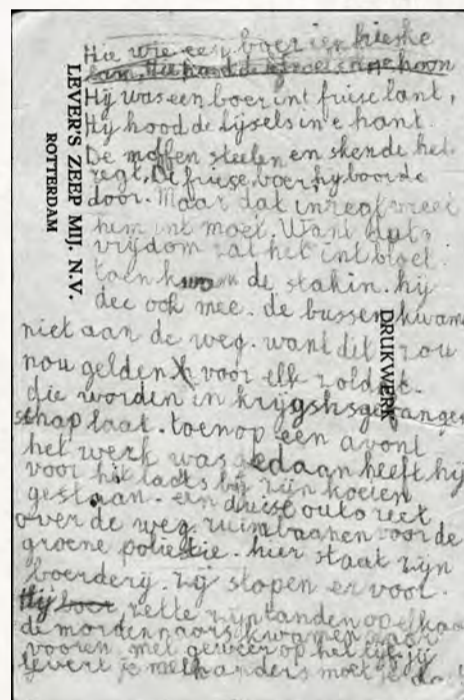 Hie wie een boer in frieske
lan, Hie hand de
Hij was een boer int friese lant,
Hij hood de lijsels in e hant.
De moffen steelen en skende het
regt. De friese boer hij boorde
door. Maar dat inreaf vreet
hem int moet. Want dat
vrijdom zat het int bloet.
toen kwam de stakin. hij
dee ook mee. de bussen kwame
niet aan de weg. want dit zou
nou gelden voor elk zoldet.
die worden in krijgshsgefanges
schap laat. toen op een avont
het werk was gedaan heeft hij
voor hit laats bij zijn koeien
gestaan. een duise outo reet
over de weg. ruimbaanen voor de
groene polietie. hier staat zijn
boerderij. zij stopen er voor.
Hij boer zette zijn tanden op elkaar
de mordennaars kwamen naar
vooren met geweer op het lijf. jij
levert je melk anders moet je
LEVER'S ZEEP MIJ. N.V.
ROTTERDAM
DRUKWERK